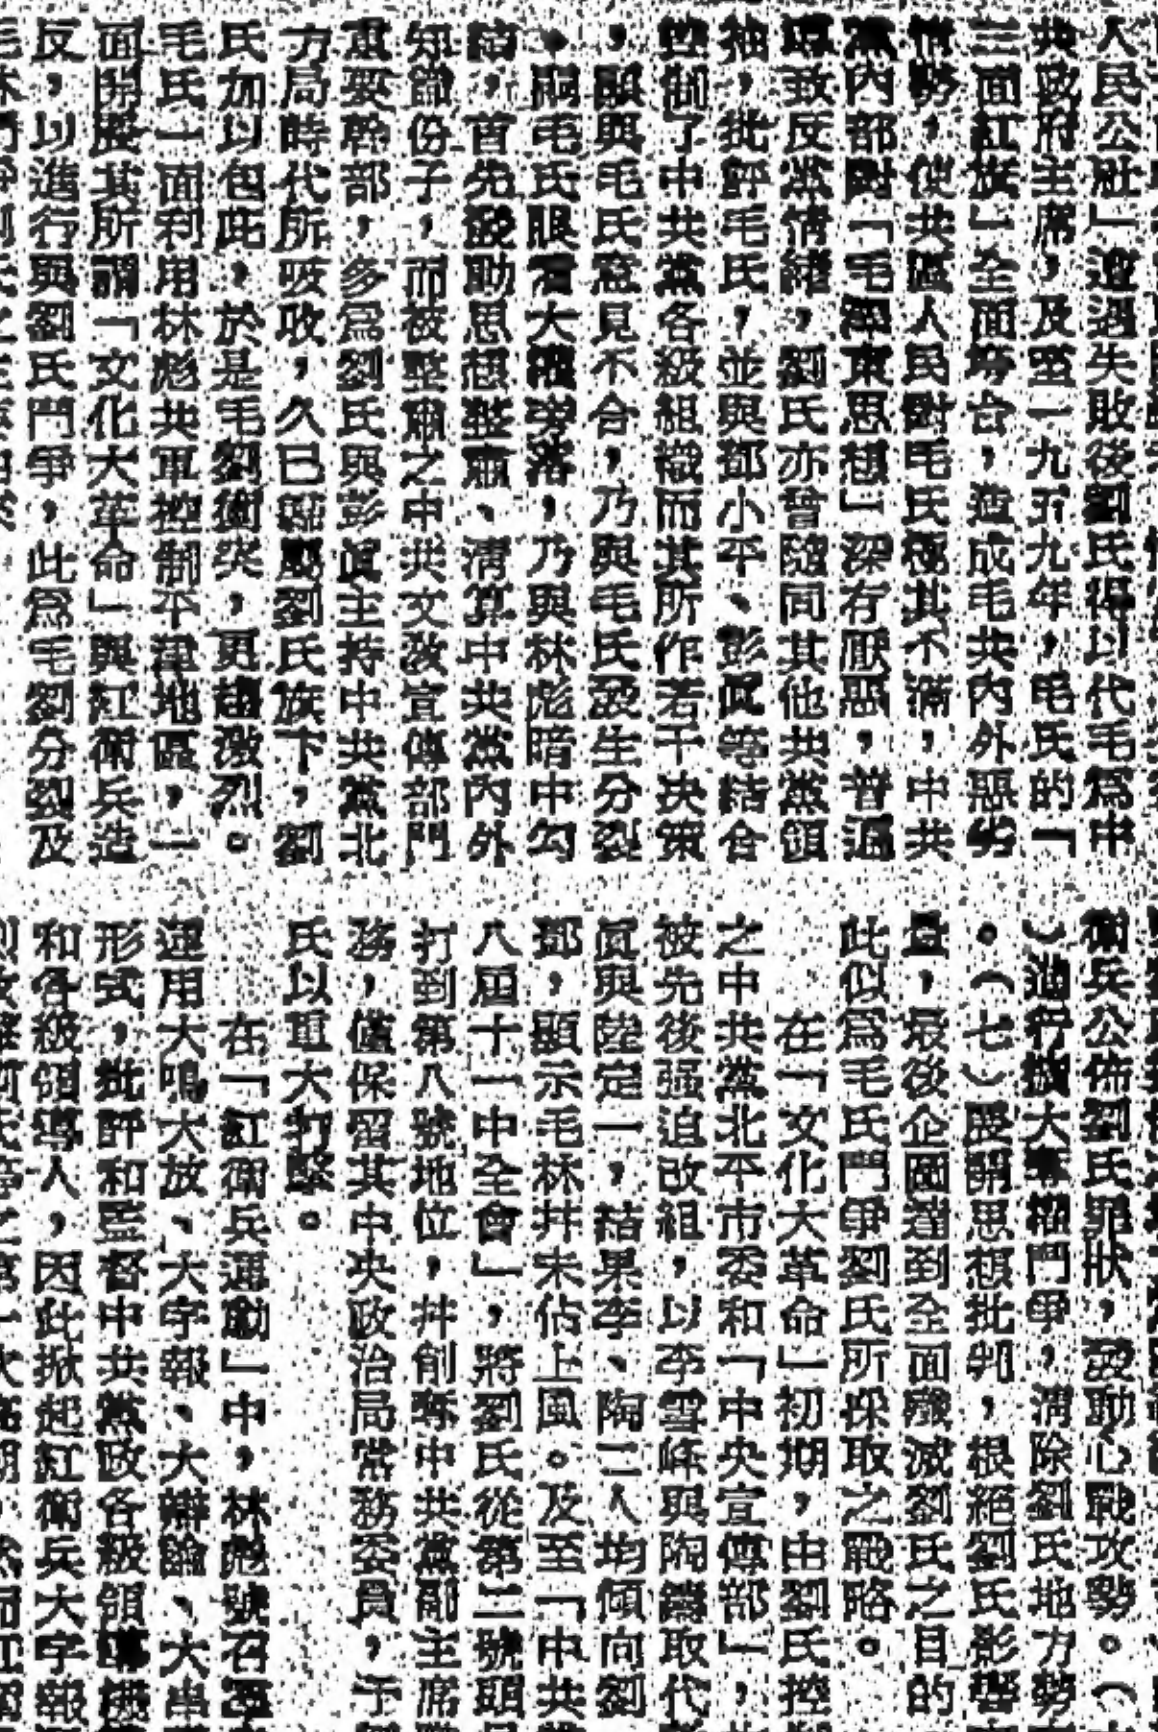 人民公社」遭遇失敗後劉氏得以代毛爲中
共政府主席,及至一九五九年,毛氏的「
三面紅旗」全面垮台,造成毛共內外惡劣
情勢,使共區人民對毛氏極其不滿,中共
黨內部對「毛澤東思想」深存厭惡,普遍
導致反黨情緒,劉氏亦曾隨同其他共黨領
袖,批評毛氏,並與鄧小平、彭眞等結合
控制了中共黨各級組織而其所作若干决策
,頗與毛氏意見不合,乃與毛氏發生分裂
、嗣毛氏眼看大權旁落,乃與林彪暗中勾
結,首先發動思想整肅、淸算中共黨內外
知識份子,而被整肅之中共文敎宣傳部門
重要幹部,多爲劉氏與彭眞主持中共黨北
方局時代所吸收,久已歸屬劉氏旗下,劉
氏加以包庇,於是毛劉衝突,更趨激烈。
毛氏一面利用林彪共軍控制平津地區,一
面開展其所謂「文化大革命」與紅衛兵造
反,以進行與劉氏鬥爭,此爲毛劉分裂及
衛兵公佈劉氏罪狀,發動心戰攻勢。(
)進行擴大奪權鬥爭,淸除劉氏地方勢
。(七)展開思想批判,根絕劉氏影響
最後企圖達到全面殲滅劉氏之目的
此似爲毛氏鬥爭劉氏所採取之戰略。
在「文化大革命」初期,由劉氏控
之中共黨北平市委和「中央宣傳部」,
被先後强迫改組,以李雪峰與陶鑄取代
眞與陸定一,結果李、陶二人均傾向劉
鄧,顯示毛林幷未佔上風。及至「中共
八屆十一中全會」,將劉氏從第二號頭
打到第八號地位,幷削奪中共黨副主席
務,僅保留其中央政治局常務委員,予
氏以重大打擊。
在「紅衛兵運動」中,林彪號召
運用大鳴大放、大字報、大辯論、大串
形式,批評和監督中共黨政各級領導機
和各級領導人,因此掀起紅衛兵大字報